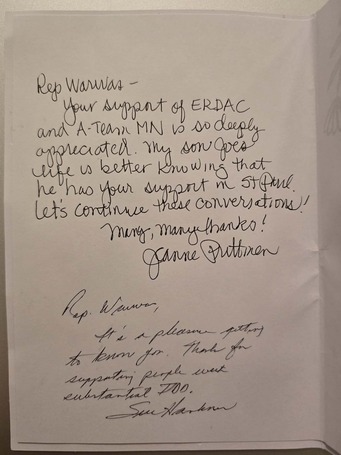 Rep Warwas –
Your support of ERDAC
and A-Team MN is so deeply
appreciated. My son Joe's
life is better knowing that
he has your support in St Paul.
Let's continue these conversations!
Many, many thanks!
Jeanne
Rep. Warwas,
It's a pleasure getting
to know you. Thank for
supporting people with
substantial IDD.
Sue